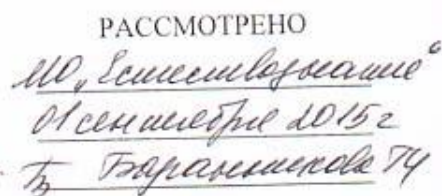 РАССМОТРЕНО
МО „Естествознание“
01 сентября 2015 г
Баранникова ТЧ